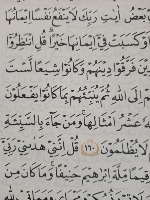 بَعْضُ ءَايَٰتِ رَبِّكَ لَا يَنفَعُ نَفْسًا إِيمَٰنُهَا
أَوْ كَسَبَتْ فِىٓ إِيمَٰنِهَا خَيْرًا ۗ قُلِ ٱنتَظِرُوٓا۟
ينَ فَرَّقُوا۟ دِينَهُمْ وَكَانُوا۟ شِيَعًا لَّسْتَ
م إِلَى ٱللَّهِ ثُمَّ يُنَبِّئُهُم بِمَا كَانُوا۟ يَفْعَلُونَ
هُۥ عَشْرُ أَمْثَالِهَا ۖ وَمَن جَآءَ بِٱلسَّيِّئَةِ
لَا يُظْلَمُونَ ١٦٠ قُلْ إِنَّنِى هَدَىٰنِى رَبِّىٓ
قِيَمًا مِّلَّةَ إِبْرَٰهِيمَ حَنِيفًا ۚ وَمَا كَانَ مِنَ